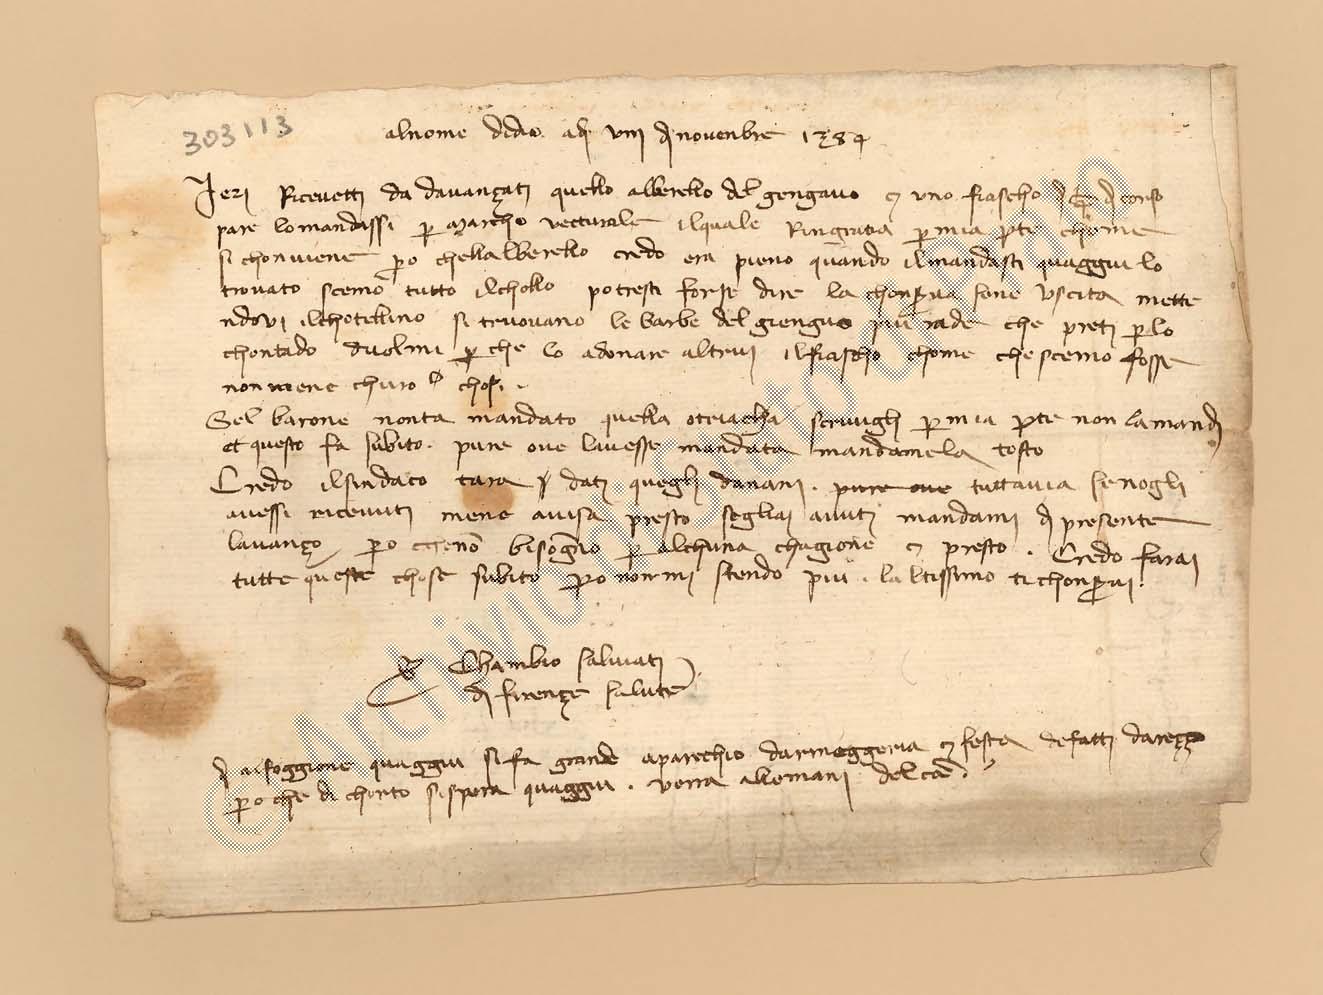 303113
al nome di dio adi VIII di novenbre 1384
Ieri Ricevetti da davançati quello alberello del gengavo e uno fiascho di
pare lo mandassi per Marcho vetturale il quale Ringratia per mia parte chome
si chonviene però che l alberello credo era pieno quando il mandasti quaggiu lo
trovato scemo tutto il chollo potresti forse dire la chonserva sene uscita mette
ndovi il choltellino si truovano le barbe del giengavo più rade che preti per lo
chontado duolmi perche lo a donare altrui il fiascho chome che scemo fosse
non mene churo chosi
Sel barone non ta mandato quella scrivigli per mia parte non la mandi
et questo fa subito. pure ove l avesse mandata mandamela tosto
Credo il sindaco tara dati quegli danari. pure ove tuttavia se no gli
avessi ricevuti mene avisa presto se gli ai avuti mandami di presente
l avanço però che no bisogno per alchuna chagione e presto. Credo farai
tutte queste chose subito però non mi stendo più. l altissimo ti chonservi.
Chambio salviati
di firençe salute
quaggiu si fa grande aparechio d armeggeria e festa de fatti d areço
però che di cherto si spera quaggiu. verra alle mani del
© Archivio di Stato di Prato